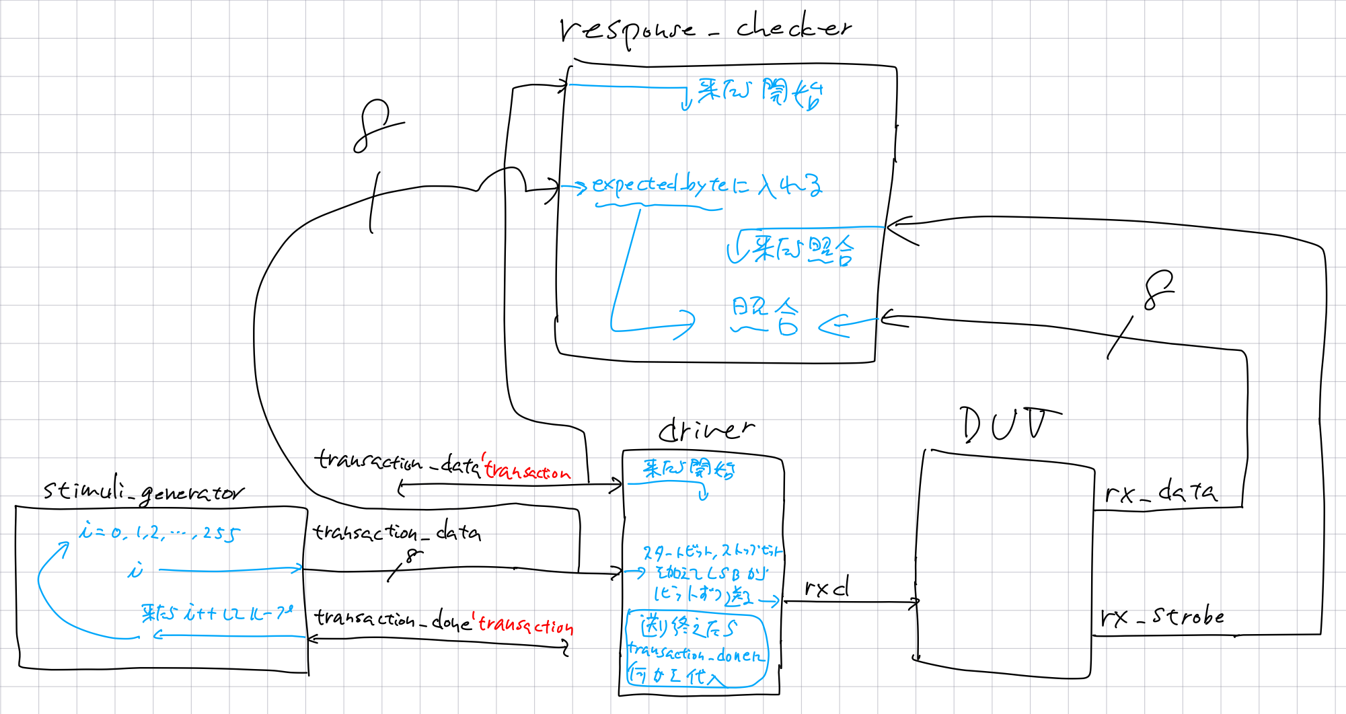 response_checker
来たら開始
8
expected_byteに入れる
来たら照合
8
照合
driver
DUT
transaction_data'transaction
来たら開始
stimuli_generator
rx_data
i=0,1,2,…,255
transaction_data
8
スタートビット,ストップビット
i
を加えてLSBから
1ビットずつ送る
rxd
来たらi++してループ
transaction_done'transaction
rx_strobe
送り終えたら
transaction_doneに
何かを代入